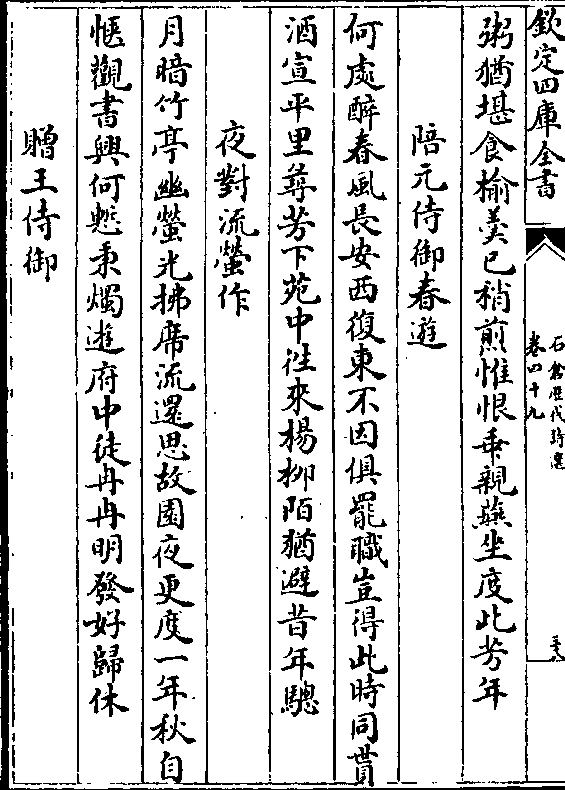 欽定四庫全書
石倉歷代詩選
卷四十九
粥猶堪食榆羮已稍煎惟恨乖親燕坐度此芳年
陪元侍御春遊
何處醉春風長安西復東不因俱罷職豈得此時同貰
酒宣平里尋芳下苑中往來楊柳陌猶避昔年驄
夜對流螢作
月暗竹亭幽螢光拂席流還思故園夜更度一年秋自
愜觀書興何慙秉燭遊府中徒冉冉明發好歸休
贈王侍御